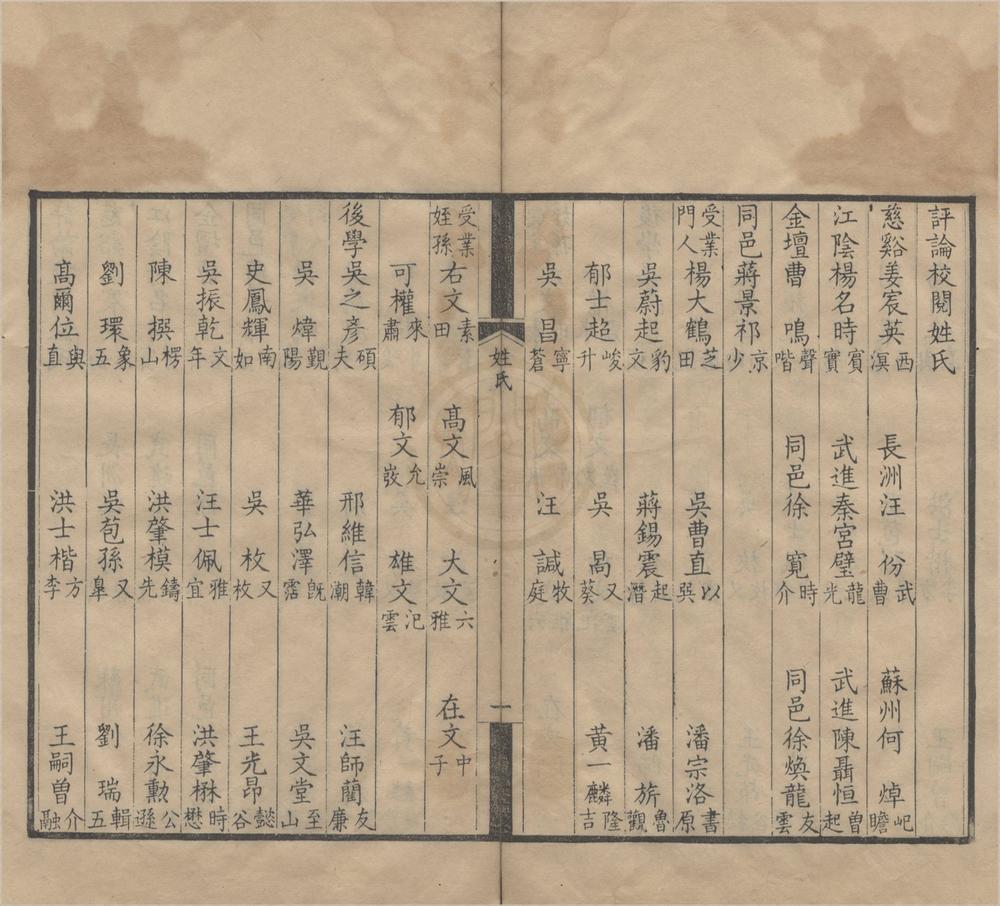 評論校閱姓氏
慈谿姜宸英西溟 長洲汪份武曹 蘇州何焯屺瞻
江陰楊名時賓實 武進秦宮璧龍光 武進陳聶恒曽起
金壇曹鳴聲喈 同邑徐寛時介 同邑徐煥龍友雲
同邑蔣景祁京少
受業門人楊大鶴芝田 吳曹直以巽 潘宗洛書原
吳蔚起豹文 蔣錫震起潛 潘旂魯觀
郁士超峻升 吳曷又葵 黄一麟隆吉
吳昌寧蒼 汪諴牧庭
姓氏
一
受業姪孫右文素田 高文風崇 大文六雅 在文中子
可權來肅 郁文允㢤 雄文汜雲
後學吳之彥碩夫 邢維信韓潮 汪師藺友廉
吳煒覲陽 華弘澤旣霑 吳文堂至山
史鳳輝南如 吳枚又枚 王光昂懿谷
吳振乾文年 汪士佩雅宜 洪肇楙時懋
陳撰楞山 洪肇模鑄先 徐永勲公遜
劉環象五 吳苞孫又皐 劉瑞輯五
髙爾位與直 洪士楷方李 王嗣曽介融